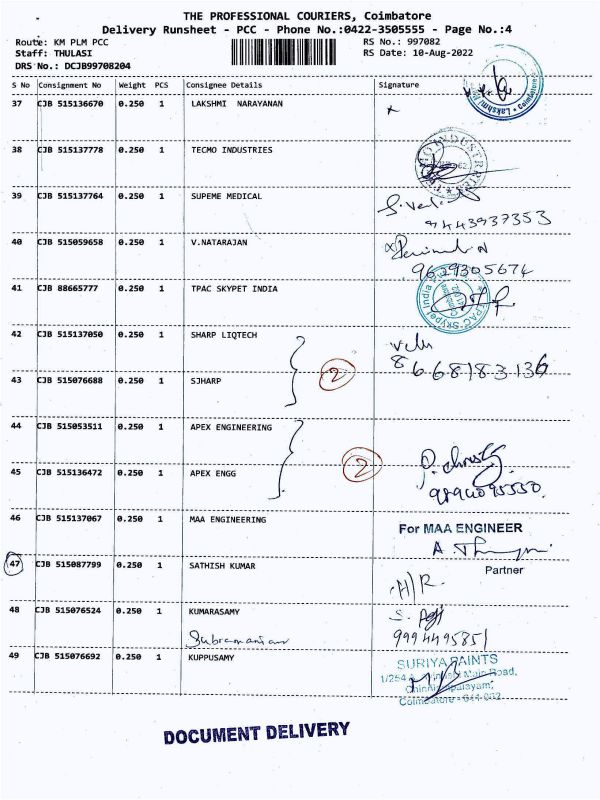 THE PROFESSIONAL COURIERS, Coimbatore
Delivery Runsheet - PCC - Phone No.:0422-3505555 - Page No.:4
Route: KM PLM PCC RS No.: 997082
Staff: THULASI RS Date: 10-Aug-2022
DRS No.: DCJB99708204
S No Consignment No Weight PCS Consignee Details Signature
37 CJB 515136670 0.250 1 LAKSHMI NARAYANAN
38 CJB 515137778 0.250 1 TECMO INDUSTRIES
39 CJB 515137764 0.250 1 SUPEME MEDICAL
9443937353
40 CJB 515059658 0.250 1 V.NATARAJAN
9629305674
41 CJB 88665777 0.250 1 TPAC SKYPET INDIA
42 CJB 515137050 0.250 1 SHARP LIQTECH
Velu
8668183136
2
43 CJB 515076688 0.250 1 SJHARP
44 CJB 515053511 0.250 1 APEX ENGINEERING
2
45 CJB 515136472 0.250 1 APEX ENGG
46 CJB 515137067 0.250 1 MAA ENGINEERING
For MAA ENGINEER
Partner
47 CJB 515087799 0.250 1 SATHISH KUMAR
48 CJB 515076524 0.250 1 KUMARASAMY
Subramanian
9994495851
49 CJB 515076692 0.250 1 KUPPUSAMY
SURIYA PAINTS
DOCUMENT DELIVERY